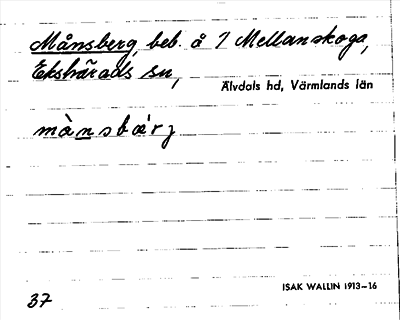 Månsberg, beb. å 7 Mellanskoga,
Ekshärads sn,
Älvdals hd, Värmlands län
månsbærj
ISAK WALLIN 1913–16
37